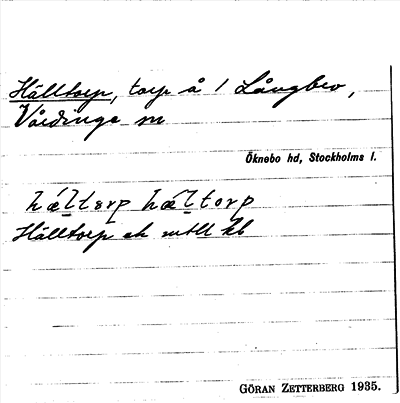 Hälltorp, torp å 1 Långbro,
Vårdinge sn
Öknebo hd, Stockholms l.
hǽltorp hæ̀ltorp
Hälltorp ek mtll kb
GÖRAN ZETTERBERG 1935.